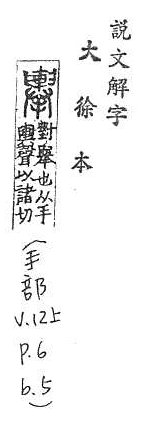 説文解字
大徐本
對舉也从手
輿聲以諸切
(手部
V.12上
P.6
b.5)